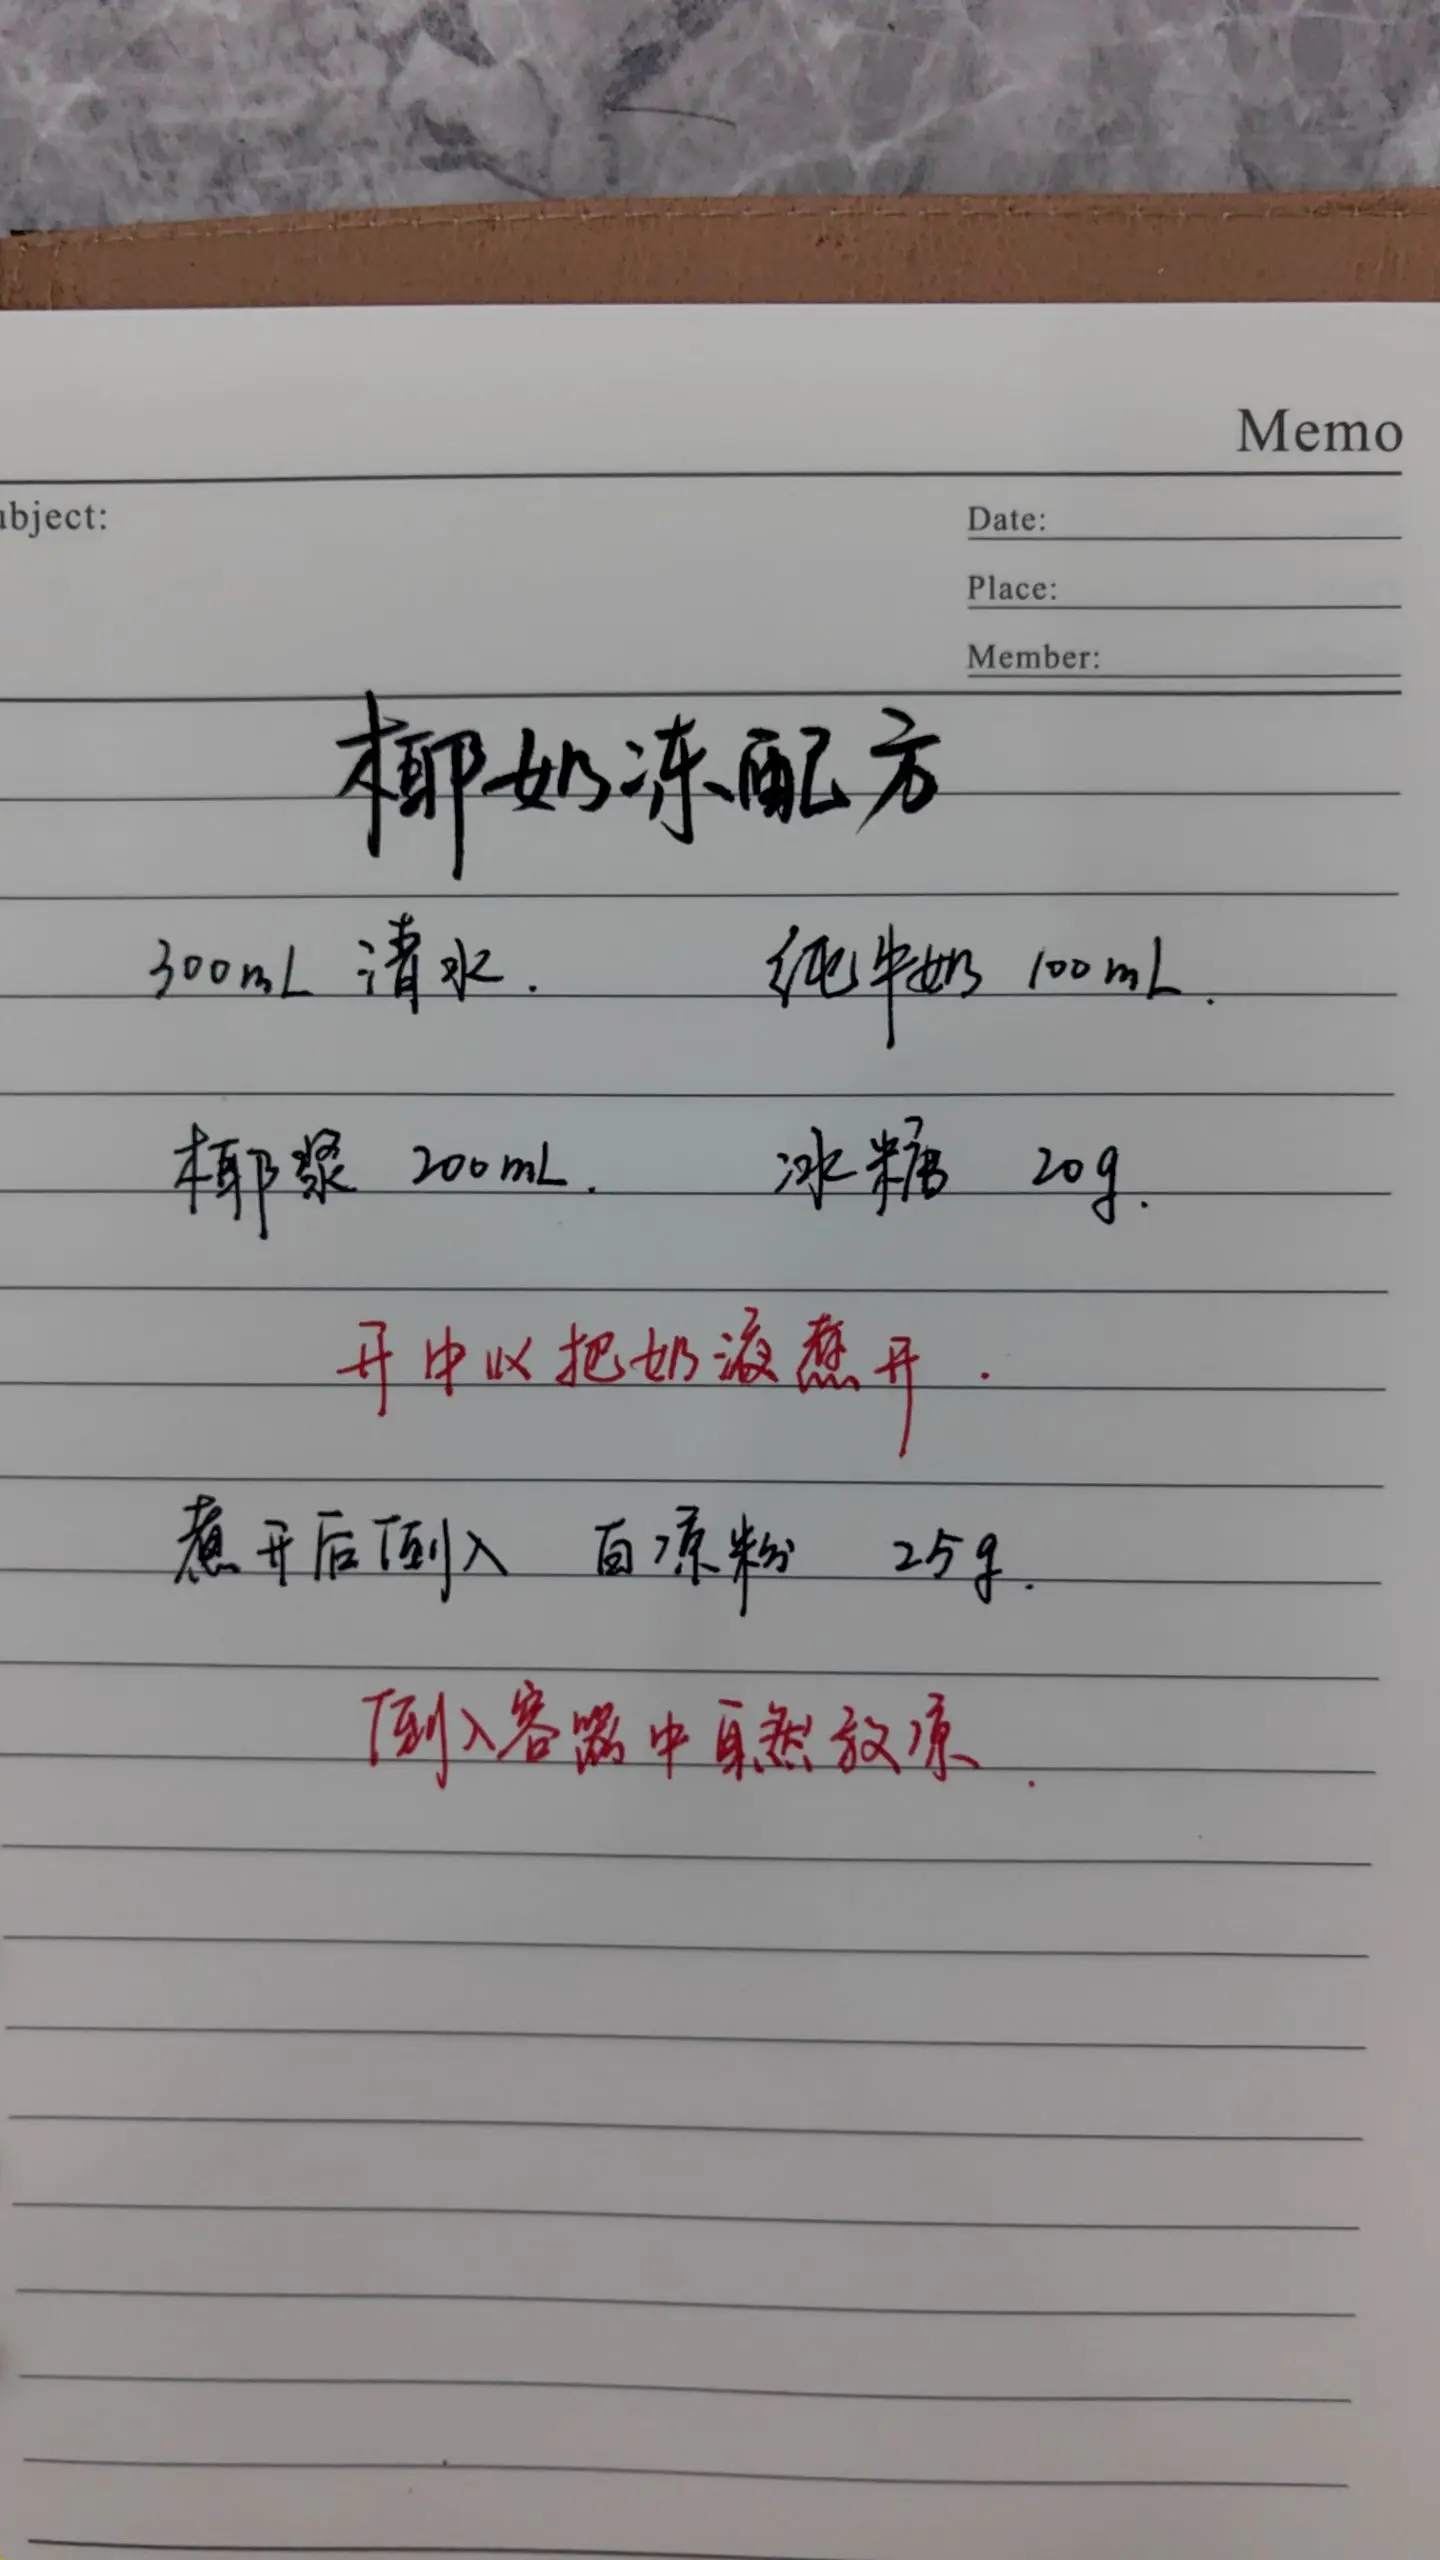 Memo
ubject:
Date:
Place:
Member:
椰奶冻配方
300mL 清水. 纯牛奶 100mL.
椰浆 200mL. 冰糖 20g.
开中火把奶液煮开.
煮开后倒入 白凉粉 25g.
倒入容器中自然放凉.